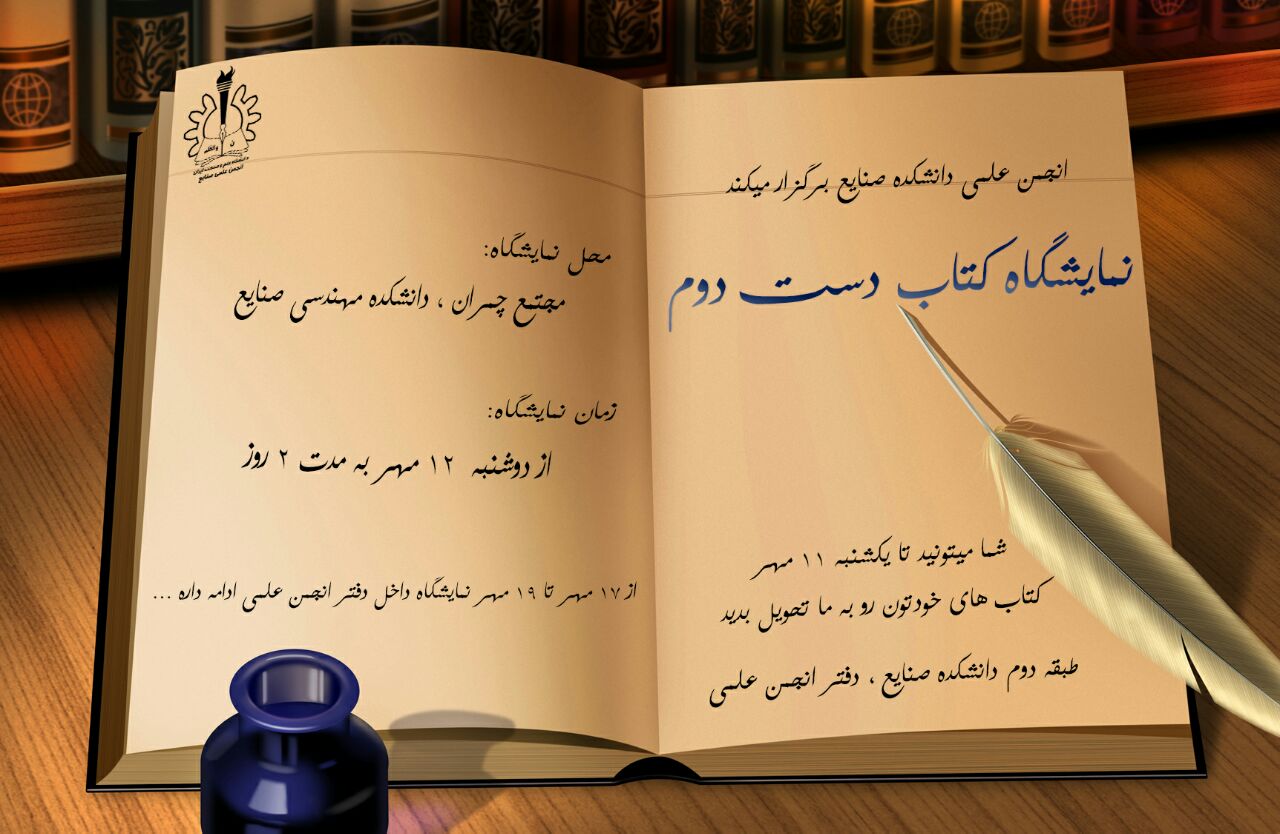 انجمن علمی دانشکده صنایع برگزار میکند
نمایشگاه کتاب دست دوم
شما میتونید تا یکشنبه ۱۱ مهر
کتاب های خودتون رو به ما تحویل بدید
طبقه دوم دانشکده صنایع ، دفتر انجمن علمی
دانشگاه علم و صنعت ایران
انجمن علمی صنایع
محل نمایشگاه:
مجتمع چمران ، دانشکده مهندسی صنایع
زمان نمایشگاه:
از دوشنبه ۱۲ مهر به مدت ۲ روز
از ۱۷ مهر تا ۱۹ مهر نمایشگاه داخل دفتر انجمن علمی ادامه داره ...